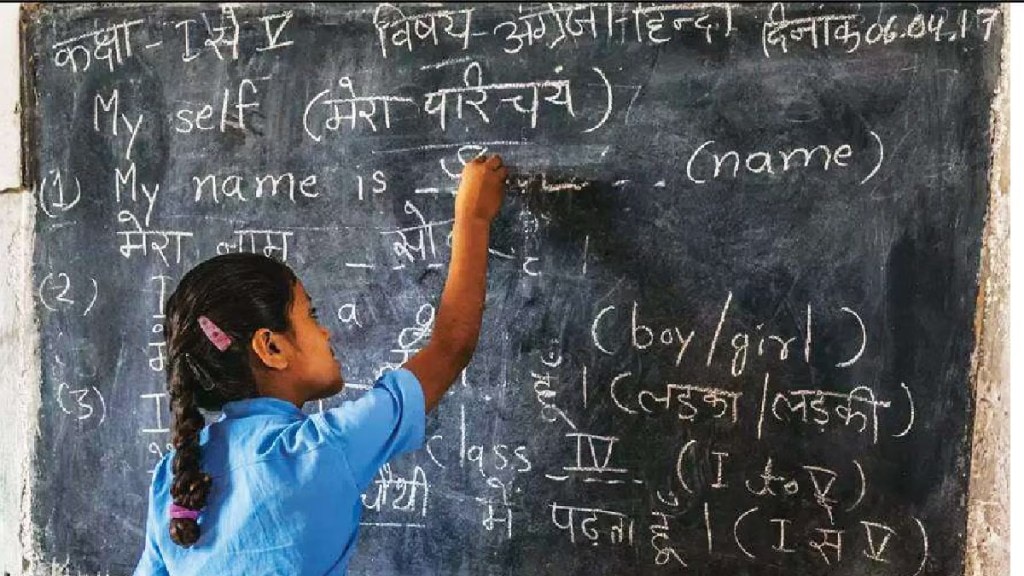 कक्षा - I से V विषय - अंग्रेजी - हिन्दी दिनांक 06.04.17
My self (मेरा परिचय)
(1) My name is (name)
मेरा नाम
(2) I a (boy/girl)
हूँ । (लड़का /लड़की)
(3) I class IV (I to V)
चौथी में पढ़ता हूँ । (I से V)